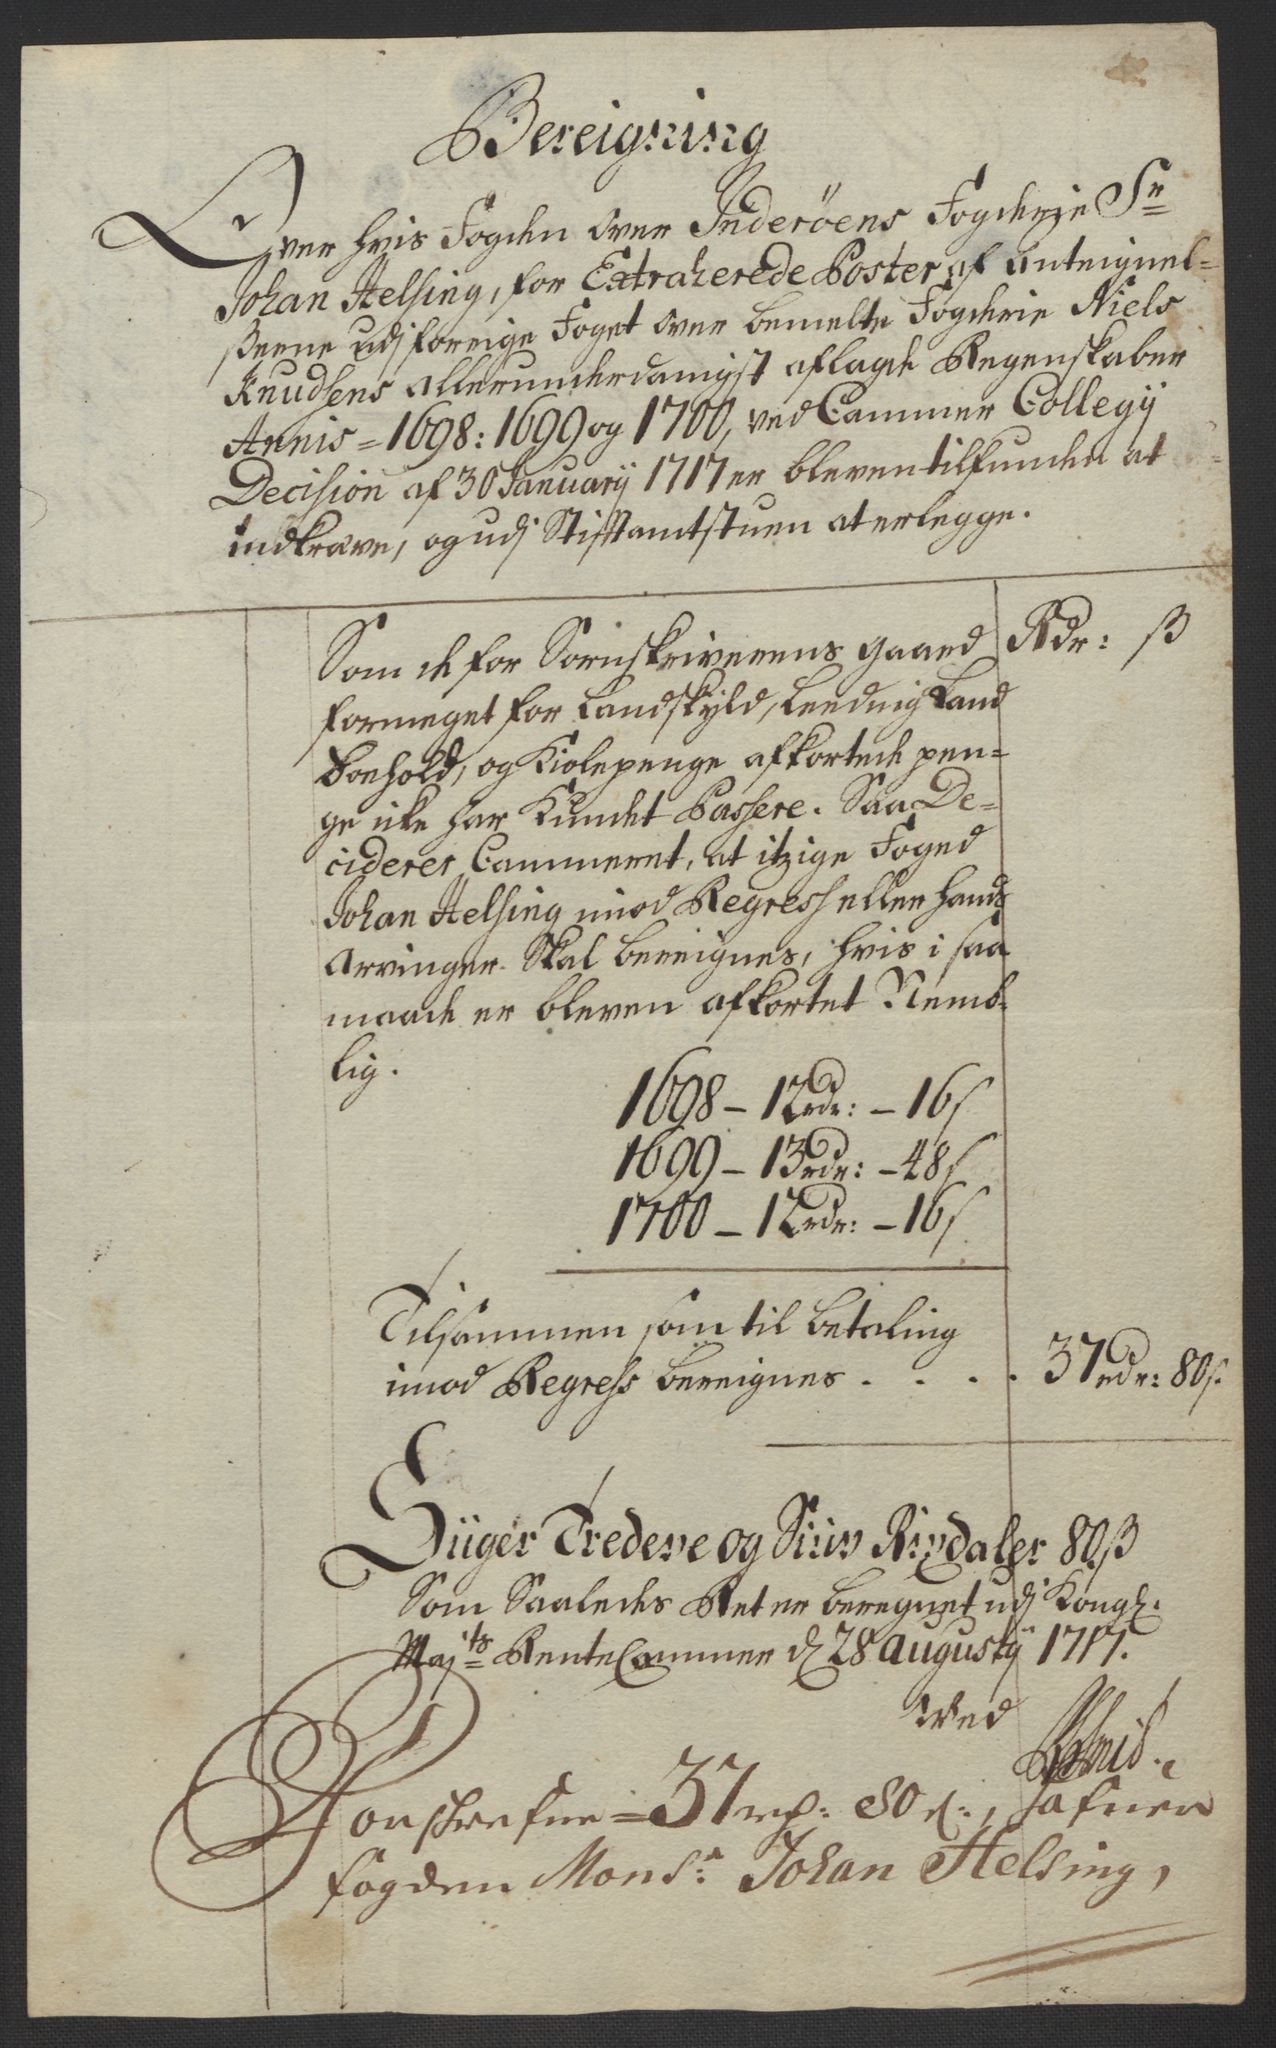 Bereigning
Over hvis Fogden over Inderöens Fogderje Sr
Johan Helsing, for Extraherede Poster af Anteignel-
ßerne udj forrige Foget over bemelte Fogderie Niels
Knudsens allerunderdanigst aflagde Regenskaber
Annis = 1698: 1699 og 1700, ved Cammer Collegÿ
Decision af 30 Januarÿ 1717 er bleven tilfunden at
indkræve, og udj Stifftamtstuen at erlegge.
Som de for Sornskriverens gaard Rdr: ß
formeget for Landskyld, Leeding Land
boehold, og Kiolepenge afkortede pen-
ge icke har Kundet Passere. Saa De-
ciderer Cammeret, at itzige Foged
Johan Helsing imod Regress eller hands
Arvinger Skal bereignes, hvis i saa
maade er bleven afkortet Nemb-
lig.
1698 - 12 rdr: - 16 s
1699 - 13 rdr: - 48 s
1700 - 12 rdr: - 16 s
Tilsammen som til betaling
imod Regress bereignes . . . . 37 rdr: 80 s.
Siiger Tredeve og Siuv Rixdaler 80 ß
Som Saaledes Ret er beregnet udj Kongl.
Maj:ts RenteCammer d 28 Augustÿ 1717.
Ved
Forskrefne = 37 rd: 80 s:, hafuer
fogden Monsr: Johan Helsing,